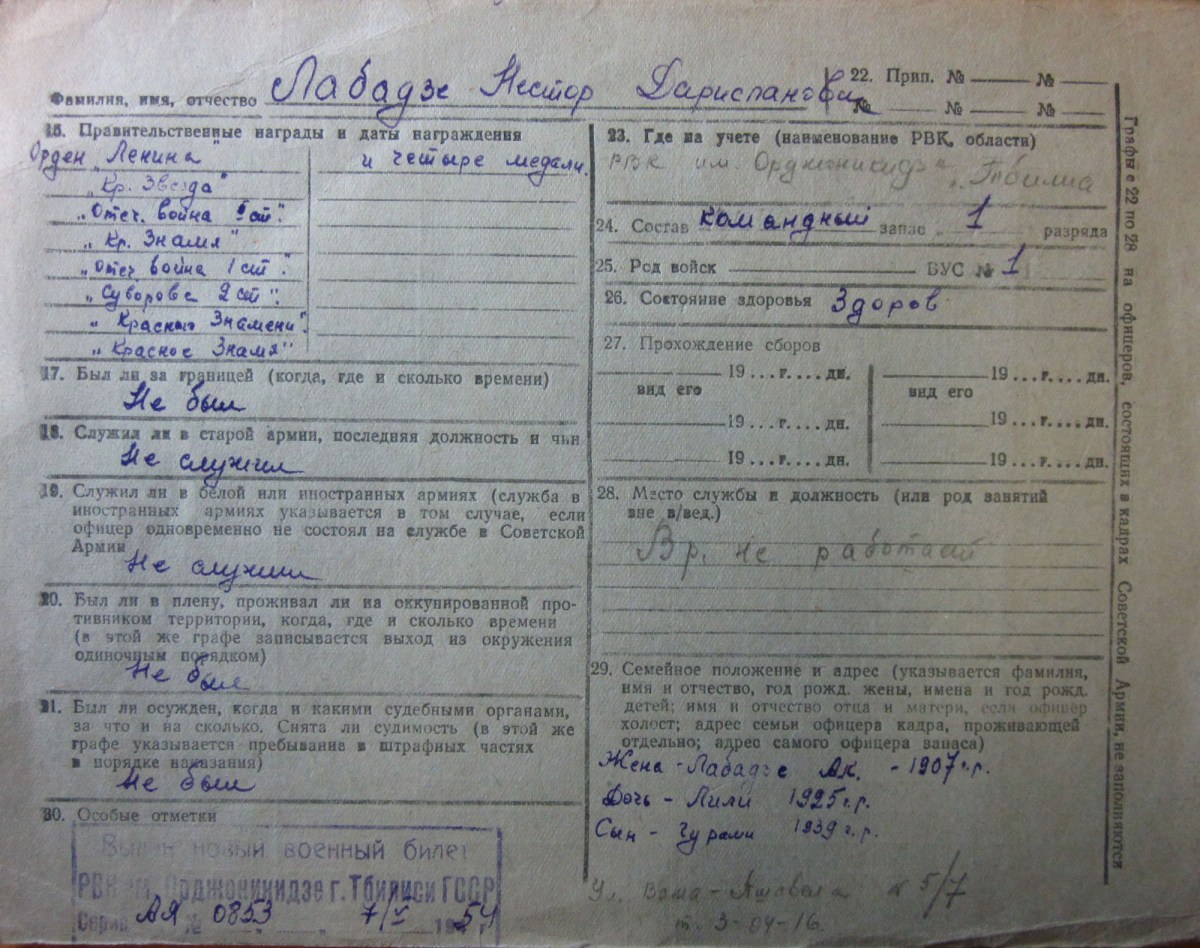 Фамилия, имя, отчество Лабадзе Нестор Дариспанович
22. Прип. № № 
№ № №
16. Правительственные награды и даты награждения
Орден „Ленина" и четыре медали.
„Кр. Звезда"
„Отеч. война ст".
„Кр. Знамя"
„Отеч. война 1 ст."
„Суворова 2 ст".
„Красного Знамени".
„Красное Знамя"
17. Был ли за границей (когда, где и сколько времени)
Не был
18. Служил ли в старой армии, последняя должность и чин
Не служил
19. Служил ли в белой или иностранных армиях (служба в
иностранных армиях указывается в том случае, если
офицер одновременно не состоял на службе в Советской
Армии
Не служил
20. Был ли в плену, проживал ли на оккупированной про-
тивником территории, когда, где и сколько времени
(в этой же графе записывается выход из окружения
одиночным порядком)
Не был
21. Был ли осужден, когда и какими судебными органами,
за что и на сколько. Снята ли судимость (в этой же
графе указывается пребывание в штрафных частях
в порядке наказания)
Не был
30. Особые отметки
Выдан новый военный билет
РВК им. Орджоникидзе г. Тбилиси ГССР
Серия АЯ № 0853 7/V 1954
23. Где на учете (наименование РВК, области)
РВК им Орджоникидзе
24. Состав командный запас 1 разряда
25. Род войск ВУС № 1
26. Состояние здоровья Здоров
27. Прохождение сборов
19...г....дн. 19...г....дн.
вид его вид его
19...г....дн. 19...г....дн.
19...г....дн. 19...г....дн.
28. Место службы и должность (или род занятий
вне в/вед.)
Вр. не работает
29. Семейное положение и адрес (указывается фамилия,
имя и отчество, год рожд. жены, имена и год рожд.
детей; имя и отчество отца и матери, если офицер
холост; адрес семьи офицера кадра, проживающей
отдельно; адрес самого офицера запаса)
Жена - Лабадзе Ак. - 1907 г.р.
Дочь - Лили 1925 г.р.
Сын - Гурами 1939 г.р.
Ул. Важа-Пшавела № 5/7
т. 3-04-16.
Графы с 22 по 28 на офицеров, состоящих в кадрах Советской Армии, не заполняются